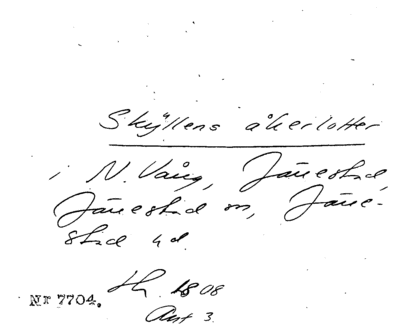 Skyllens åkerlotter
i N. Vång, Jänestad,
Jänestad sn, Jäne-
stad hd.
Hg 1808
Akt 3.
Nr 7704.